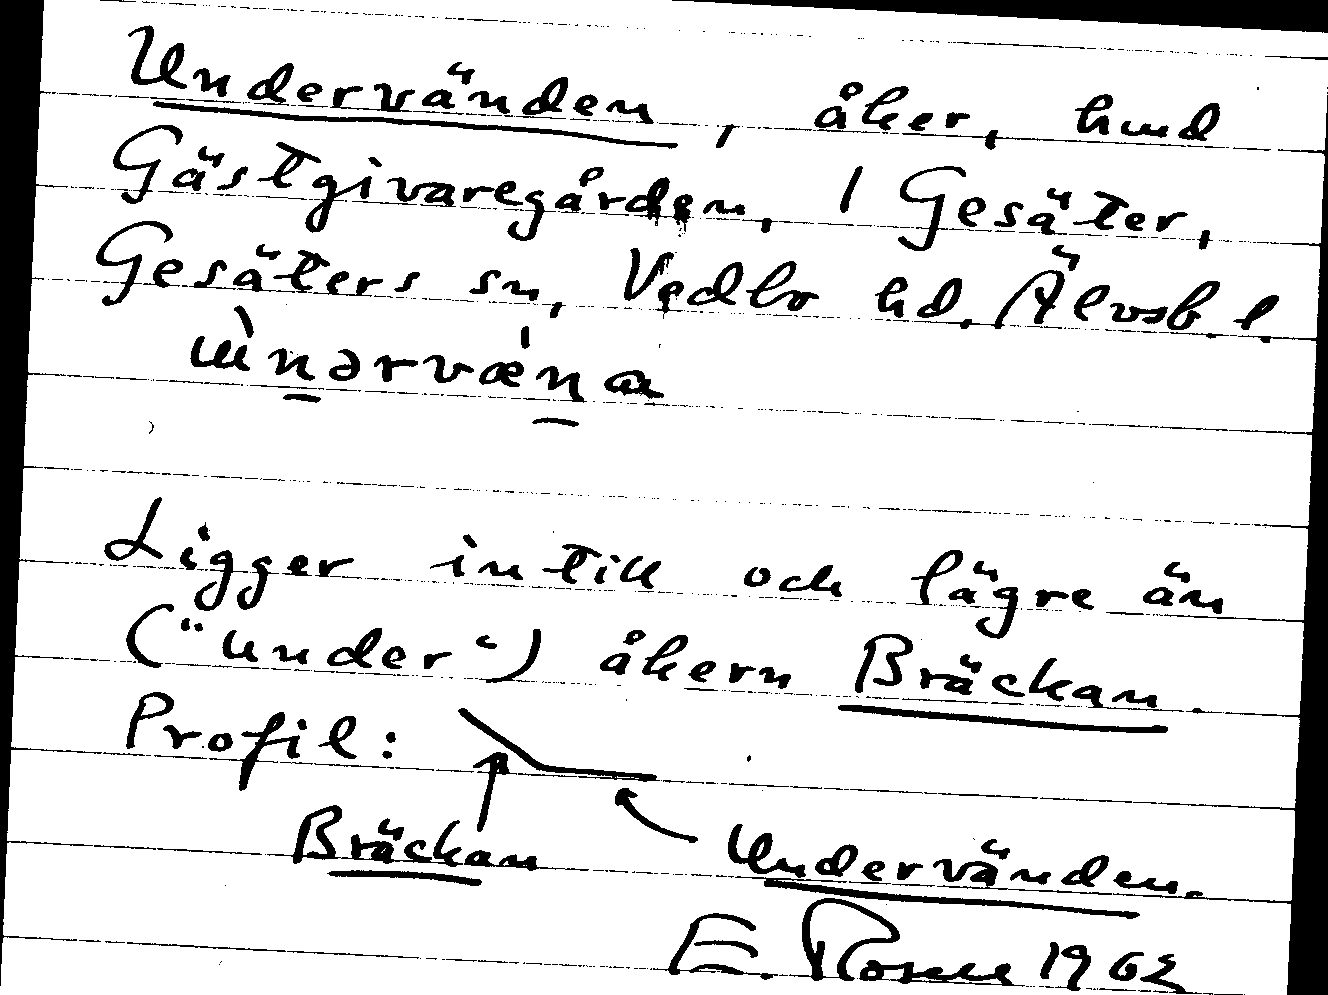 Undervänden, åker, hmd
Gästgivaregården, 1 Gesäter,
Gesäters sn, Vedbo hd. Älvsb. l.
Ligger intill och lägre än
("under") åkern Bräckan.
Profil:
Bräckan Undervänden.
E. Rosell 1962